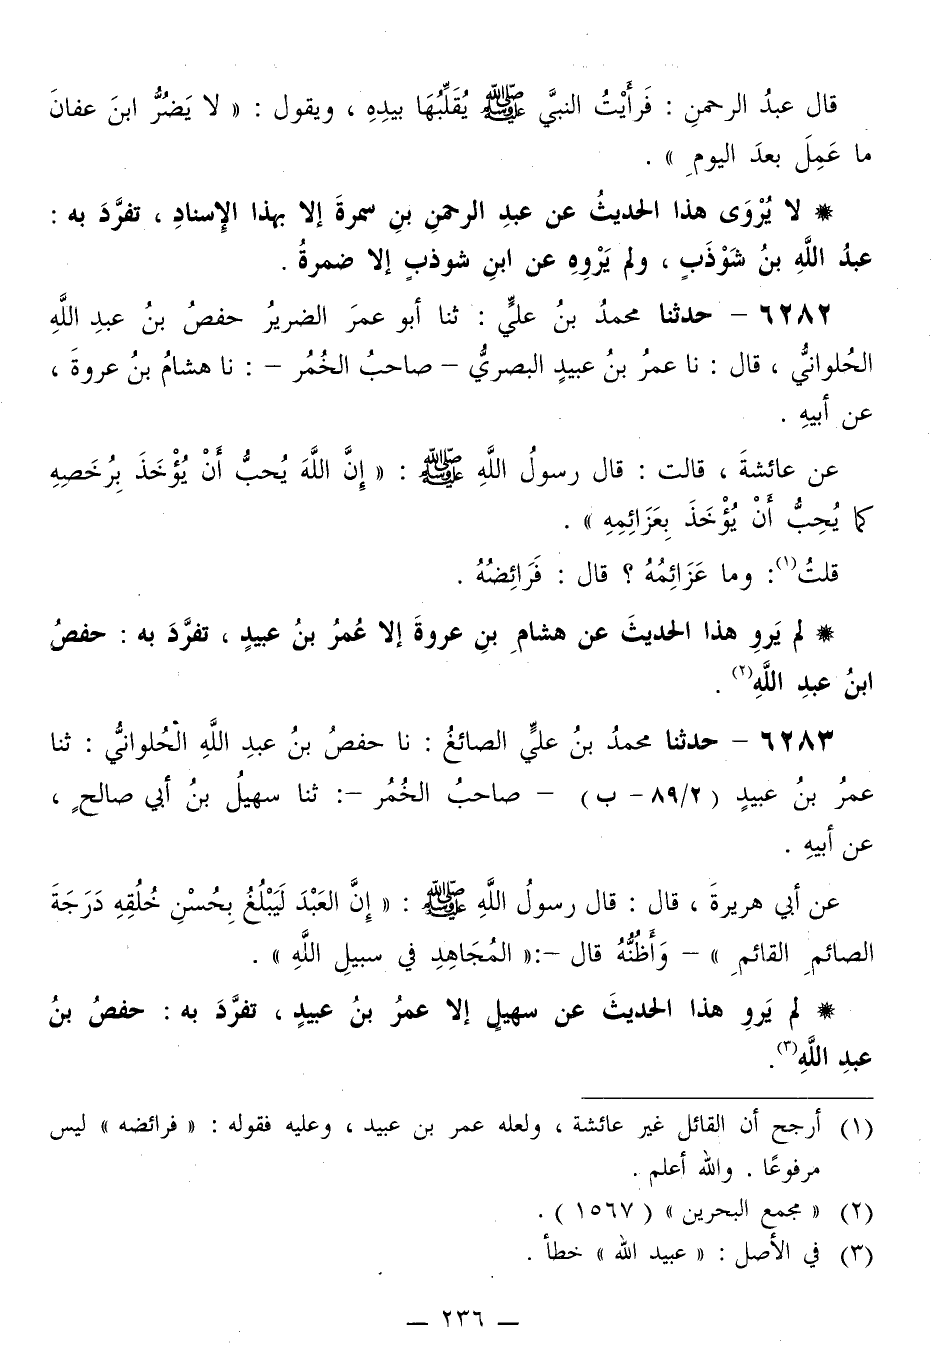 قال عبدُ الرحمنِ : فَرأَيْتُ النبيَّ ﷺ يُقَلِّبُهَا بيدِهِ ، ويقول : « لا يَضُرُّ ابنَ عفانَ
ما عَمِلَ بعدَ اليومِ » .
* لا يُرْوَى هذا الحديثُ عن عبدِ الرحمنِ بنِ سمرةَ إلا بهذا الإِسنادِ ، تفرَّدَ به :
عبدُ اللَّهِ بنُ شَوْذَبٍ ، ولم يَرْوِهِ عن ابنِ شوذبٍ إلا ضمرةُ .
٦٢٨٢ – حدثنا محمدُ بنُ عليٍّ : ثنا أبو عمرَ الضريرُ حفصُ بنُ عبدِ اللَّهِ
الحُلوانيُّ ، قال : نا عمرُ بنُ عبيدٍ البصريُّ – صاحبُ الخُمُر – : نا هشامُ بنُ عروةَ ،
عن أبيهِ .
عن عائشةَ ، قالت : قال رسولُ اللَّهِ ﷺ : « إِنَّ اللَّهَ يُحبُّ أَنْ يُؤْخَذَ بِرُخَصِهِ
كما يُحِبُّ أَنْ يُؤْخَذَ بِعَزَائِمِهِ » .
قلتُ(١): وما عَزَائِمُهُ ؟ قال : فَرَائِضُهُ .
* لم يَروِ هذا الحديثَ عن هشامِ بنِ عروةَ إلا عُمرُ بنُ عبيدٍ ، تفرَّدَ به : حفصُ
ابنُ عبدِ اللَّهِ(٢) .
٦٢٨٣ – حدثنا محمدُ بنُ عليٍّ الصائغُ : نا حفصُ بنُ عبدِ اللَّهِ الحُلوانيُّ : ثنا
عمرُ بنُ عبيدٍ ( ٨٩/٢ – ب ) – صاحبُ الخُمُر –: ثنا سهيلُ بنُ أبي صالحٍ ،
عن أبيهِ .
عن أبي هريرةَ ، قال : قال رسولُ اللَّهِ ﷺ : « إِنَّ العَبْدَ لَيَبْلُغُ بِحُسْنِ خُلُقِهِ دَرَجَةَ
الصائمِ القائمِ » – وَأَظُنُّهُ قال –:« المُجَاهِدِ في سبيلِ اللَّهِ » .
* لم يَروِ هذا الحديثَ عن سهيلٍ إلا عمرُ بنُ عبيدٍ ، تفرَّدَ به : حفصُ بنُ
عبدِ اللَّهِ(٣).
(١) أرجح أن القائل غير عائشة ، ولعله عمر بن عبيد ، وعليه فقوله : « فرائضه » ليس
مرفوعًا . والله أعلم .
(٢) « مجمع البحرين » ( ١٥٦٧ ) .
(٣) في الأصل : « عبيد الله » خطأ .
– ٢٣٦ –